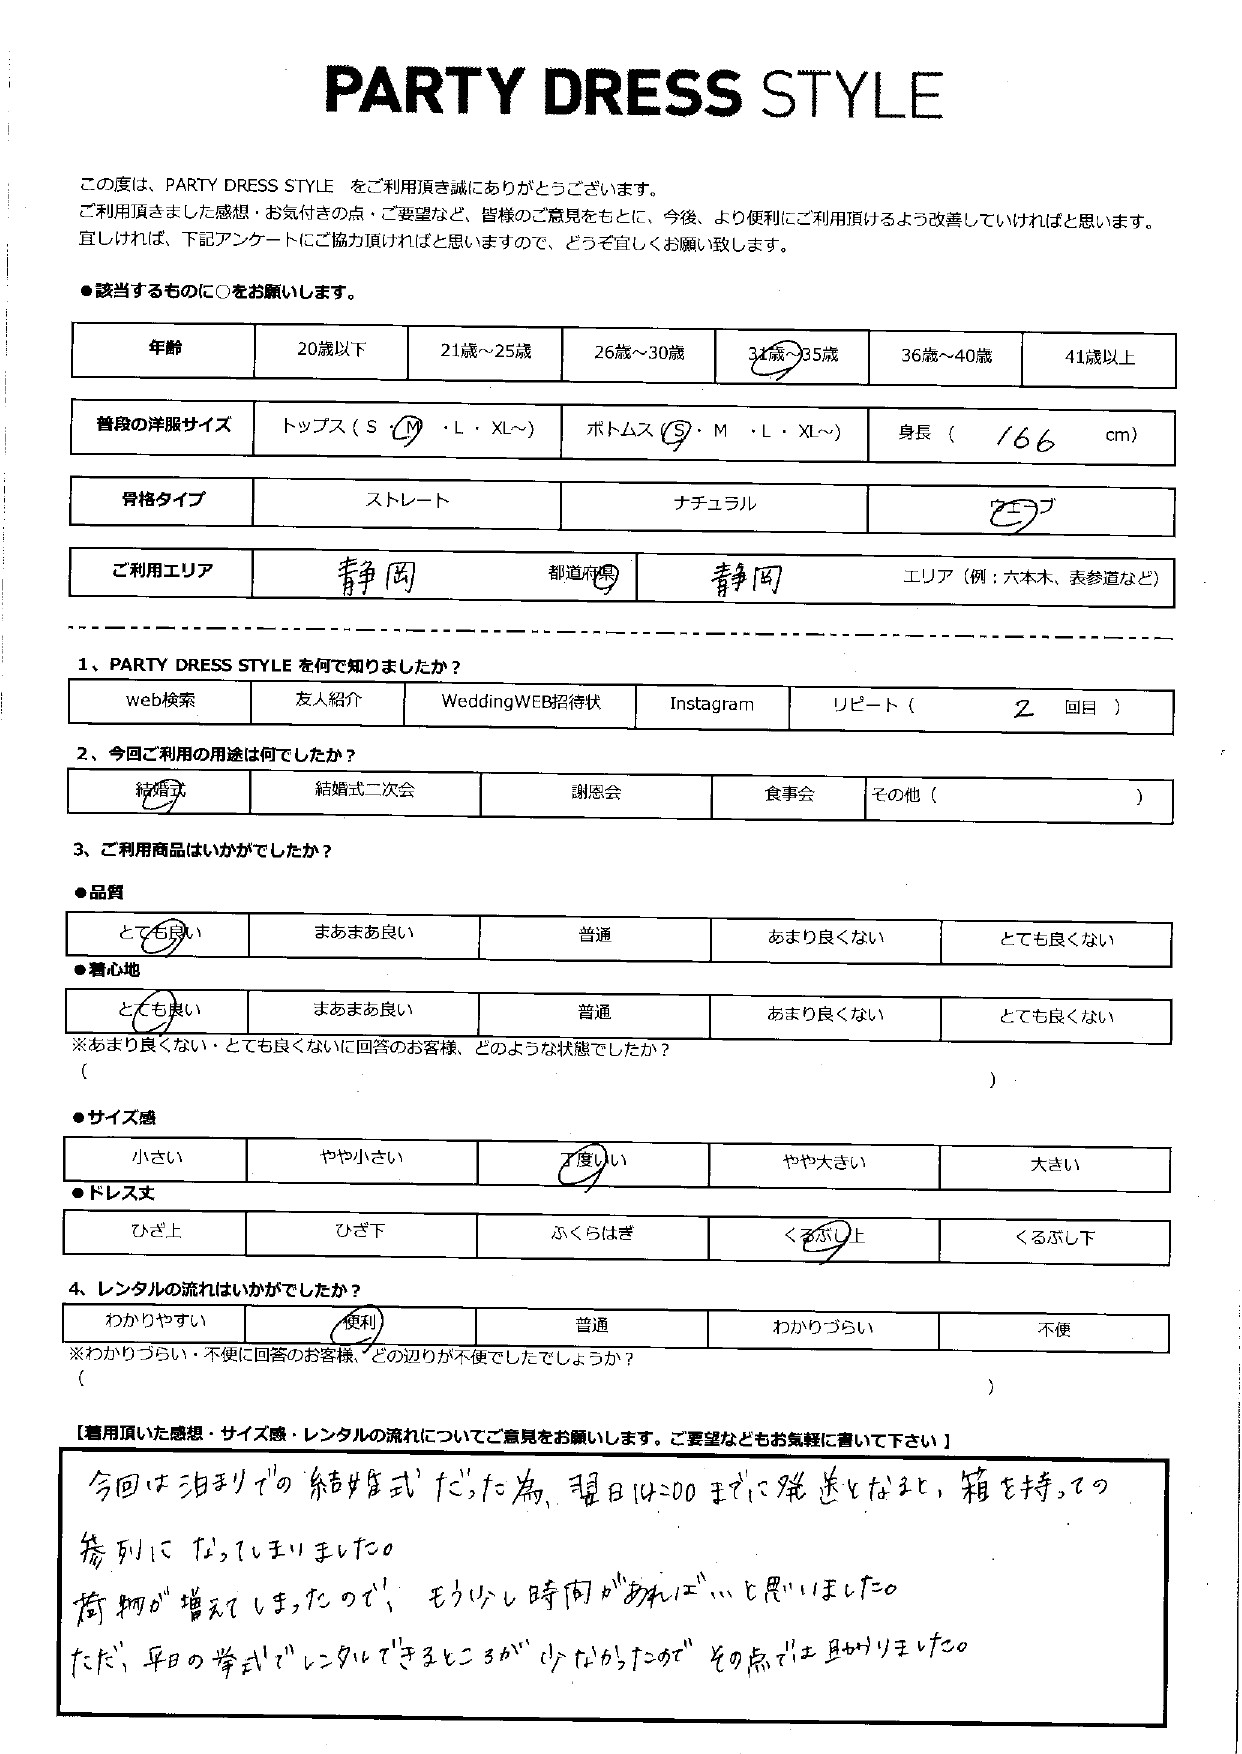 PARTY DRESS STYLE
この度は、PARTY DRESS STYLE をご利用頂き誠にありがとうございます。
ご利用頂きました感想・お気付きの点・ご要望など、皆様のご意見をもとに、今後、より便利にご利用頂けるよう改善していければと思います。
宜しければ、下記アンケートにご協力頂ければと思いますので、どうぞ宜しくお願い致します。
●該当するものに○をお願いします。
年齢 20歳以下 21歳～25歳 26歳～30歳 31歳～35歳 36歳～40歳 41歳以上
普段の洋服サイズ トップス ( S ・ M ・L ・ XL～) ボトムス ( S ・ M ・L ・ XL～) 身長 ( 166 cm)
骨格タイプ ストレート ナチュラル ウェーブ
ご利用エリア 静岡 都道府県 静岡 エリア（例：六本木、表参道など）
1、PARTY DRESS STYLE を何で知りましたか？
web検索 友人紹介 WeddingWEB招待状 Instagram リピート ( 2 回目 )
2、今回ご利用の用途は何でしたか？
結婚式 結婚式二次会 謝恩会 食事会 その他 ( )
3、ご利用商品はいかがでしたか？
●品質
とても良い まあまあ良い 普通 あまり良くない とても良くない
●着心地
とても良い まあまあ良い 普通 あまり良くない とても良くない
※あまり良くない・とても良くないに回答のお客様、どのような状態でしたか？
( )
●サイズ感
小さい やや小さい 丁度いい やや大きい 大きい
●ドレス丈
ひざ上 ひざ下 ふくらはぎ くるぶし上 くるぶし下
4、レンタルの流れはいかがでしたか？
わかりやすい 便利 普通 わかりづらい 不便
※わかりづらい・不便に回答のお客様、どの辺りが不便でしたでしょうか？
( )
【着用頂いた感想・サイズ感・レンタルの流れについてご意見をお願いします。ご要望などもお気軽に書いて下さい 】
今回は泊まりでの結婚式だった為、翌日14:00までに発送となると、箱を持っての
参列になってしまいました。
荷物が増えてしまったので、もう少し時間があればいいと思いました。
ただ、平日の挙式でレンタルできるところが少なかったのでその点では助かりました。